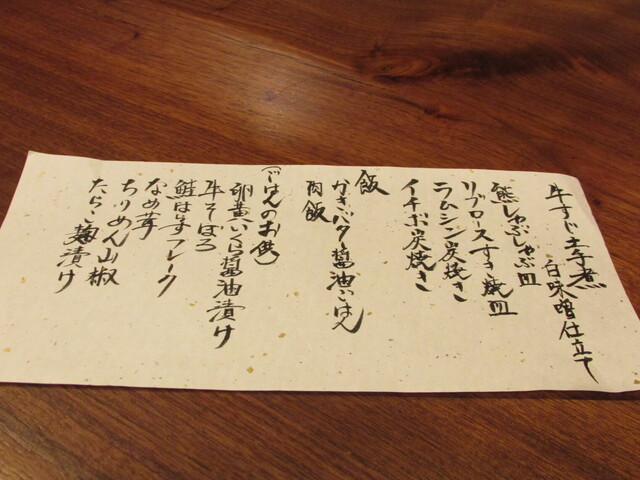 牛すじ土手煮
白味噌仕立て
熊しゃぶしゃぶ皿
リブロースすき焼皿
ラムシン炭焼き
イチボ炭焼き
飯
かきバター醤油ごはん
肉飯
(ごはんのお供)
卵黄いくら醤油漬け
牛そぼろ
鮭はらすフレーク
なめ茸
ちりめん山椒
たらこ麹漬け